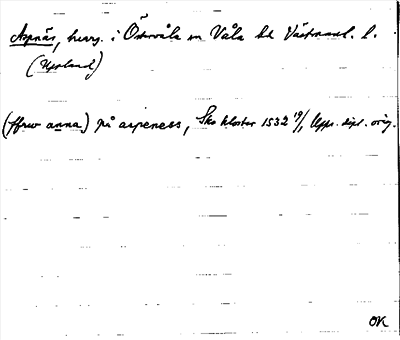 Aspnäs, herrg. i Östervåla sn Våla hd Västmanl. l.
(Uppland)
(ffrw anna) på aspeness, Sko kloster 1532 19/1, Upps. dipl. orig.
OK